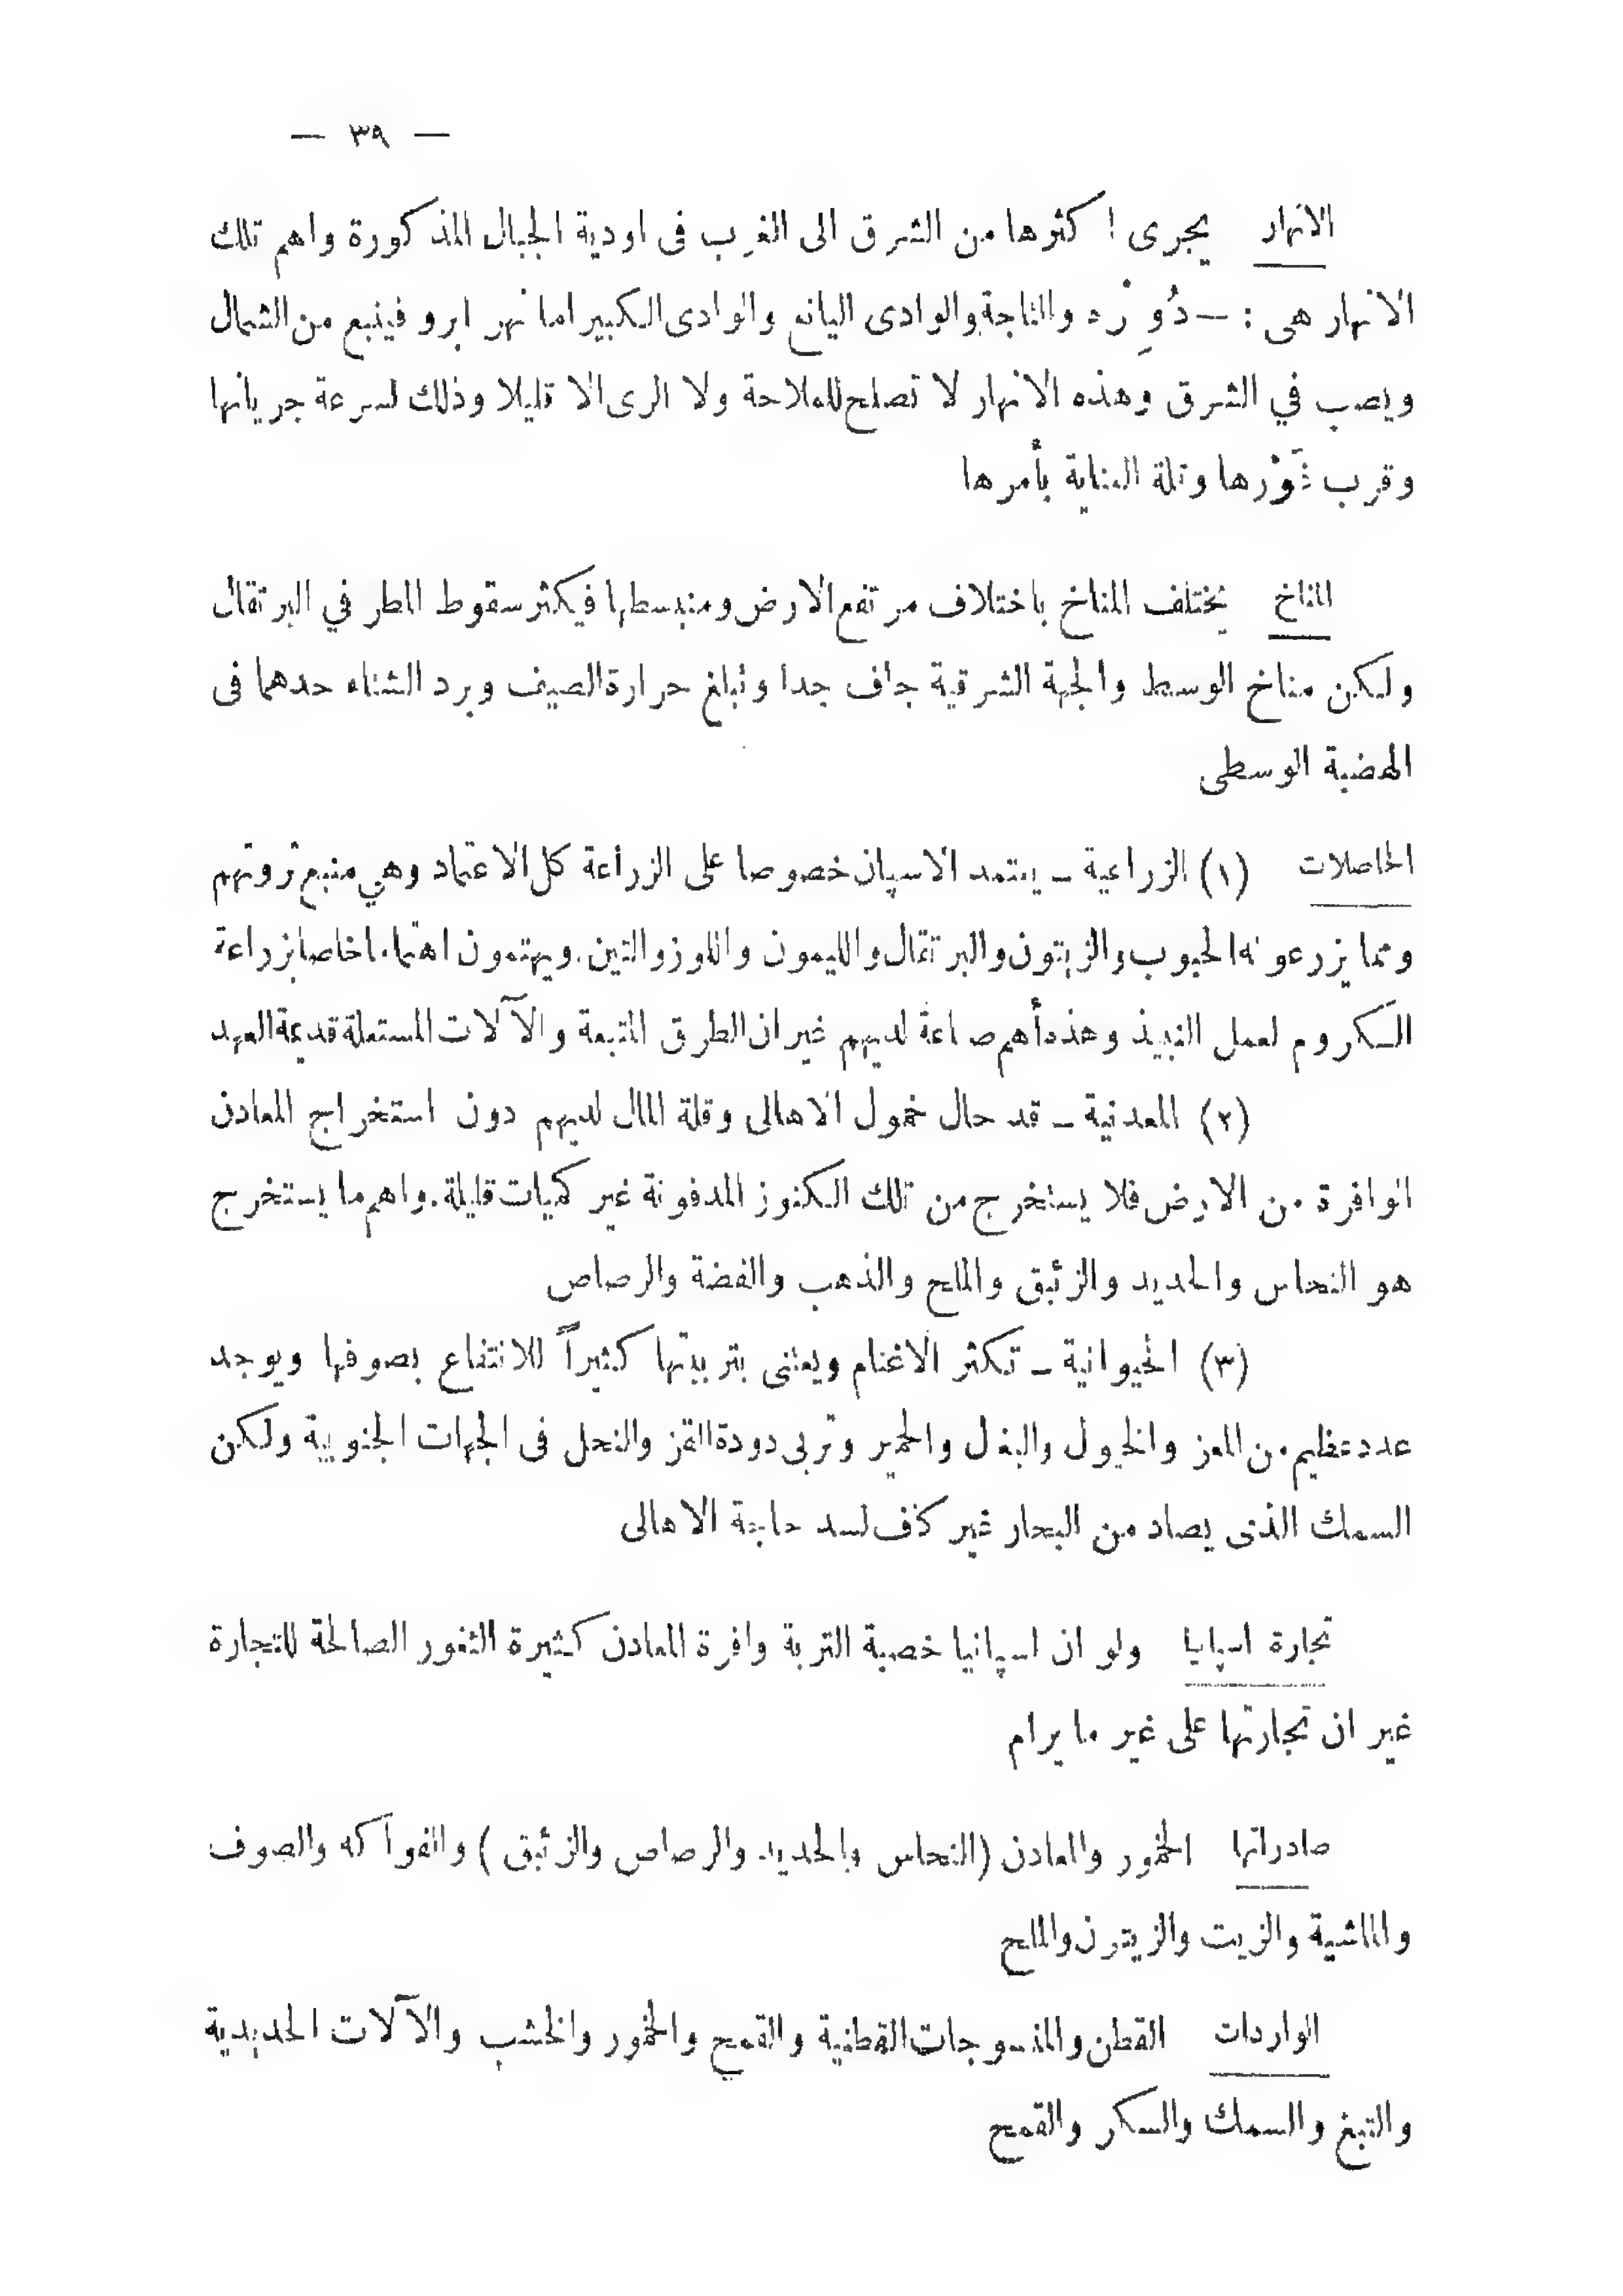 — ٣٩ —
الانهار يجرى اكثرها من الشرق الى الغرب فى اودية الجبال المذكورة واهم تلك
الانهار هى : — دُوِرْه والتاجة والوادى اليانع والوادى الكبير اما نهر ابرو فينبع من الشمال
ويصب في الشرق وهذه الانهار لا تصلح للملاحة ولا الرى الا قليلا وذلك لسرعة جريانها
وقرب غَوْرها وقلة العناية بأمرها
المناخ يختلف المناخ باختلاف مرتفع الارض ومنبسطها فيكثر سقوط المطر في البرتقال
ولكن مناخ الوسط والجهة الشرقية جاف جدا وتبلغ حرارة الصيف وبرد الشتاء حدهما فى
الهضبة الوسطى
الحاصلات (١) الزراعية – يعتمد الاسپان خصوصا على الزراعة كل الاعتماد وهي منبع ثروتهم
ومما يزرعونه الحبوب والزيتون والبرتقال والليمون واللوز والتين. ويهتمون اهتماما خاصا بزراعة
الكروم لعمل النبيذ وهذه أهم صناعة لديهم غير ان الطرق المتبعة والآلات المستعملة قديمة العهد
(٢) المعدنية – قد حال خمول الاهالى وقلة المال لديهم دون استخراج المعادن
الوافرة من الارض فلا يستخرج من تلك الكنوز المدفونة غير كميات قليلة. واهم ما يستخرج
هو النحاس والحديد والزئبق والملح والذهب والفضة والرصاص
(٣) الحيوانية – تكثر الاغنام ويعتنى بتربيتها كثيراً للانتفاع بصوفها ويوجد
عدد عظيم من المعز والخيول والبغال والحمير وتربى دودة القز والنحل فى الجهات الجنوبية ولكن
السمك الذى يصاد من البحار غير كاف لسد حاجة الاهالى
تجارة اسپانيا ولو ان اسپانيا خصبة التربة وافرة المعادن كثيرة الثغور الصالحة للتجارة
غير ان تجارتها على غير ما يرام
صادراتها الخمور والمعادن (النحاس والحديد والرصاص والزئبق) والفواكه والصوف
والماشية والزيت والزيتون والملح
الواردات القطن والمنسوجات القطنية والقمح والخمور والخشب والآلات الحديدية
والتبغ والسمك والسكر والقمح